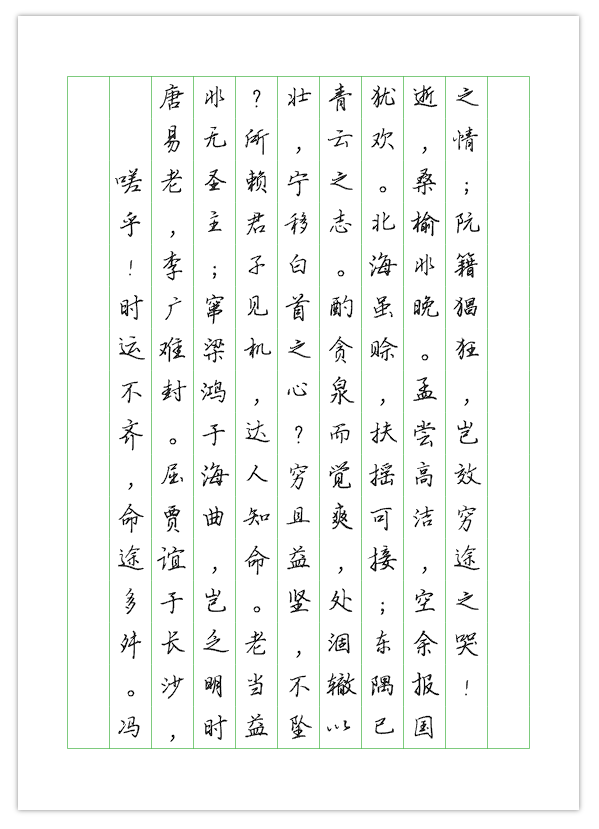 嗟乎！时运不齐，命途多舛。冯
唐易老，李广难封。屈贾谊于长沙，
非无圣主；窜梁鸿于海曲，岂乏明时
？所赖君子见机，达人知命。老当益
壮，宁移白首之心？穷且益坚，不坠
青云之志。酌贪泉而觉爽，处涸辙以
犹欢。北海虽赊，扶摇可接；东隅已
逝，桑榆非晚。孟尝高洁，空余报国
之情；阮籍猖狂，岂效穷途之哭！